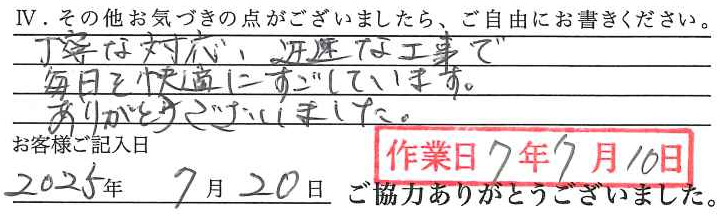 Ⅳ．その他お気づきの点がございましたら、ご自由にお書きください。
丁寧な対応、迅速な工事で
毎日を快適にすごしています。
ありがとうございました。
お客様ご記入日
作業日 7年7月10日
2025年 7月20日
ご協力ありがとうございました。